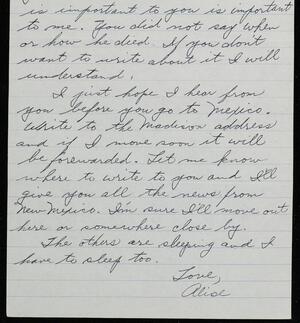 is important to you is important
to me. You did not say when
or how he died. If you don't
want to write about it I will
understand.
I just hope I hear from
you before you go to Mexico.
Write to the Madison address
and if I move soon it will
be forewarded. Let me know
where to write to you and I'll
give you all the news from
New Mexico. I'm sure I'll move out
here or somewhere close by.
The others are sleeping and I
have to sleep too.
Love,
Alice